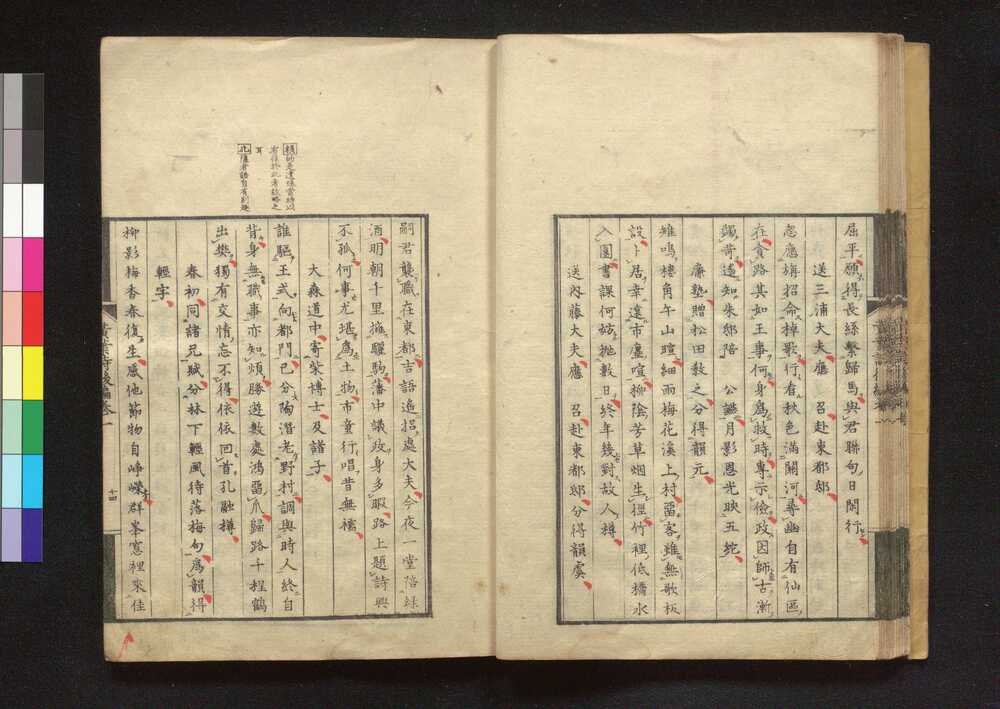 屈平願得長絲繫歸馬與君聯句日閑行
送三浦大夫應 召赴東都邸
忽應旗招命棹歌行看秋色滿關河尋幽自有仙區
在食路其如王事何身爲救時專示儉政因師古漸
蠲苛遙知朱邸陪 公讌月影恩光映五紽
廉塾贈松田敎之分得韻元
雉鳴棲角午山暄細雨梅花溪上村留客雖無歌板
設卜居幸遠市塵喧柳陰芳草烟生徑竹裡低橋水
入園書課何妨拋數日終年幾對故人樽
送內藤大夫應 召赴東都邸分得韻虞
嗣君襲職在東都吉語遙招處大夫今夜一堂陪綠
酒明朝千里擁驪駒藩中議政身多暇路上題詩興
不孤何事尤堪爲土物市童行唱昔無襦
大森道中寄柴博士及諸子
誰驅王式向都門已分陶潛老野村調與時人終自
背身無職事亦知煩勝遊數處鴻留爪歸路千程鶴
出樊獨有交情忘不得依依回首孔融樽
春初同諸兄賦分林下輕風待落梅句爲韻得
輕字
柳影梅香春復生感他節物自崢嶸群峯窓裡來佳
賴師是遣
耳
北
黃葉夕陽
十四